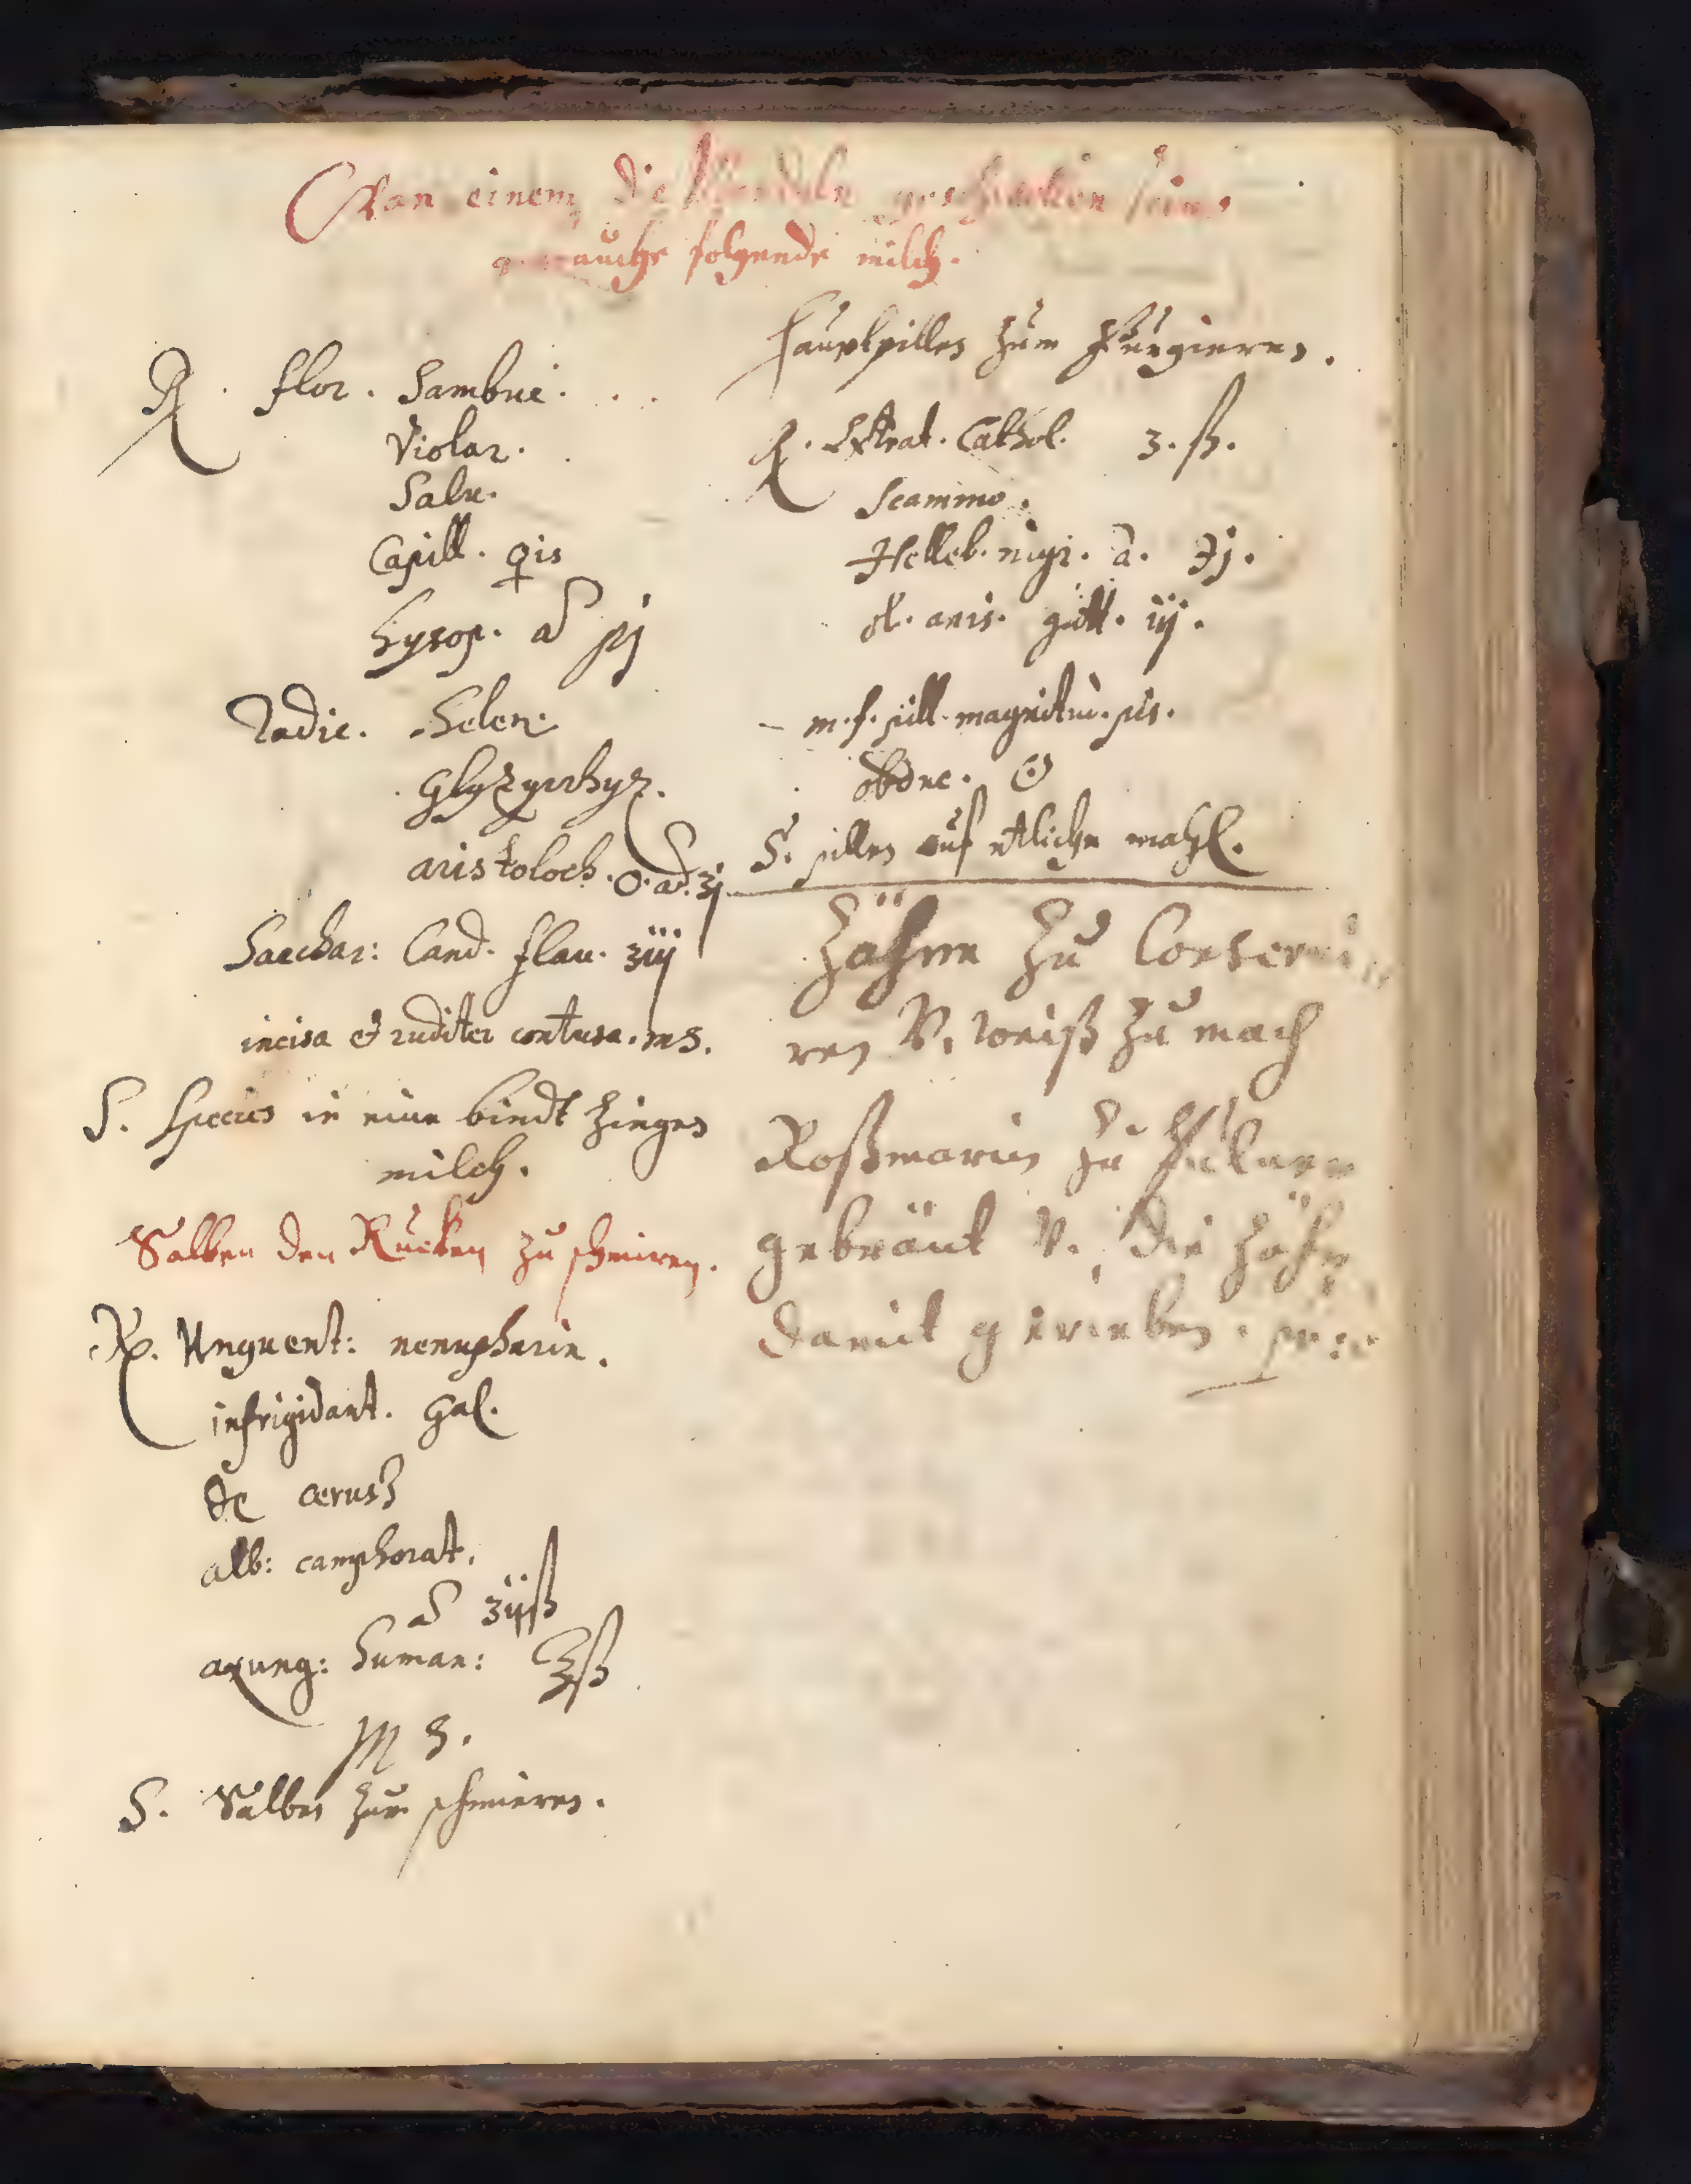 Wan einem die Mandeln geschwollen sein
gebrauche folgende milch.
℞. flor. Sambuc.
Violar.
Salv.
Capill. ♀is
hysop. aã pj
Radic. Helen.
Glyzyrrhyz.
aristoloch. O. aã. ʒj
Sacchar: Cand. flav. ʒiij
incisa et ruditer contusa. ms.
S. Species in eine bindt Zigen
milch.
Salben den Rucken zu schmiren.
℞. Unguent: nenupharin.
infrigidant. Gal.
de ceruss
alb: camphorat.
aã ʒijß
axung: human: ℥ß
M S.
S. Salben zum schmieren.
Hauptpillen zum Purgieren.
℞. Extrat. Cathol. ʒ. ß.
Scammo.
Helleb. nigr. ã. ℈j.
ol. anis. gutt. iij.
m. f. pill. magnitud. pis.
obduc. ☉
S. pillen auf etliche mahl.
Zähne zu Conservi
ren V. weiß zu mach
Roßmarin zu Pulver
gebränt V. die Zähn
damit gerieben.